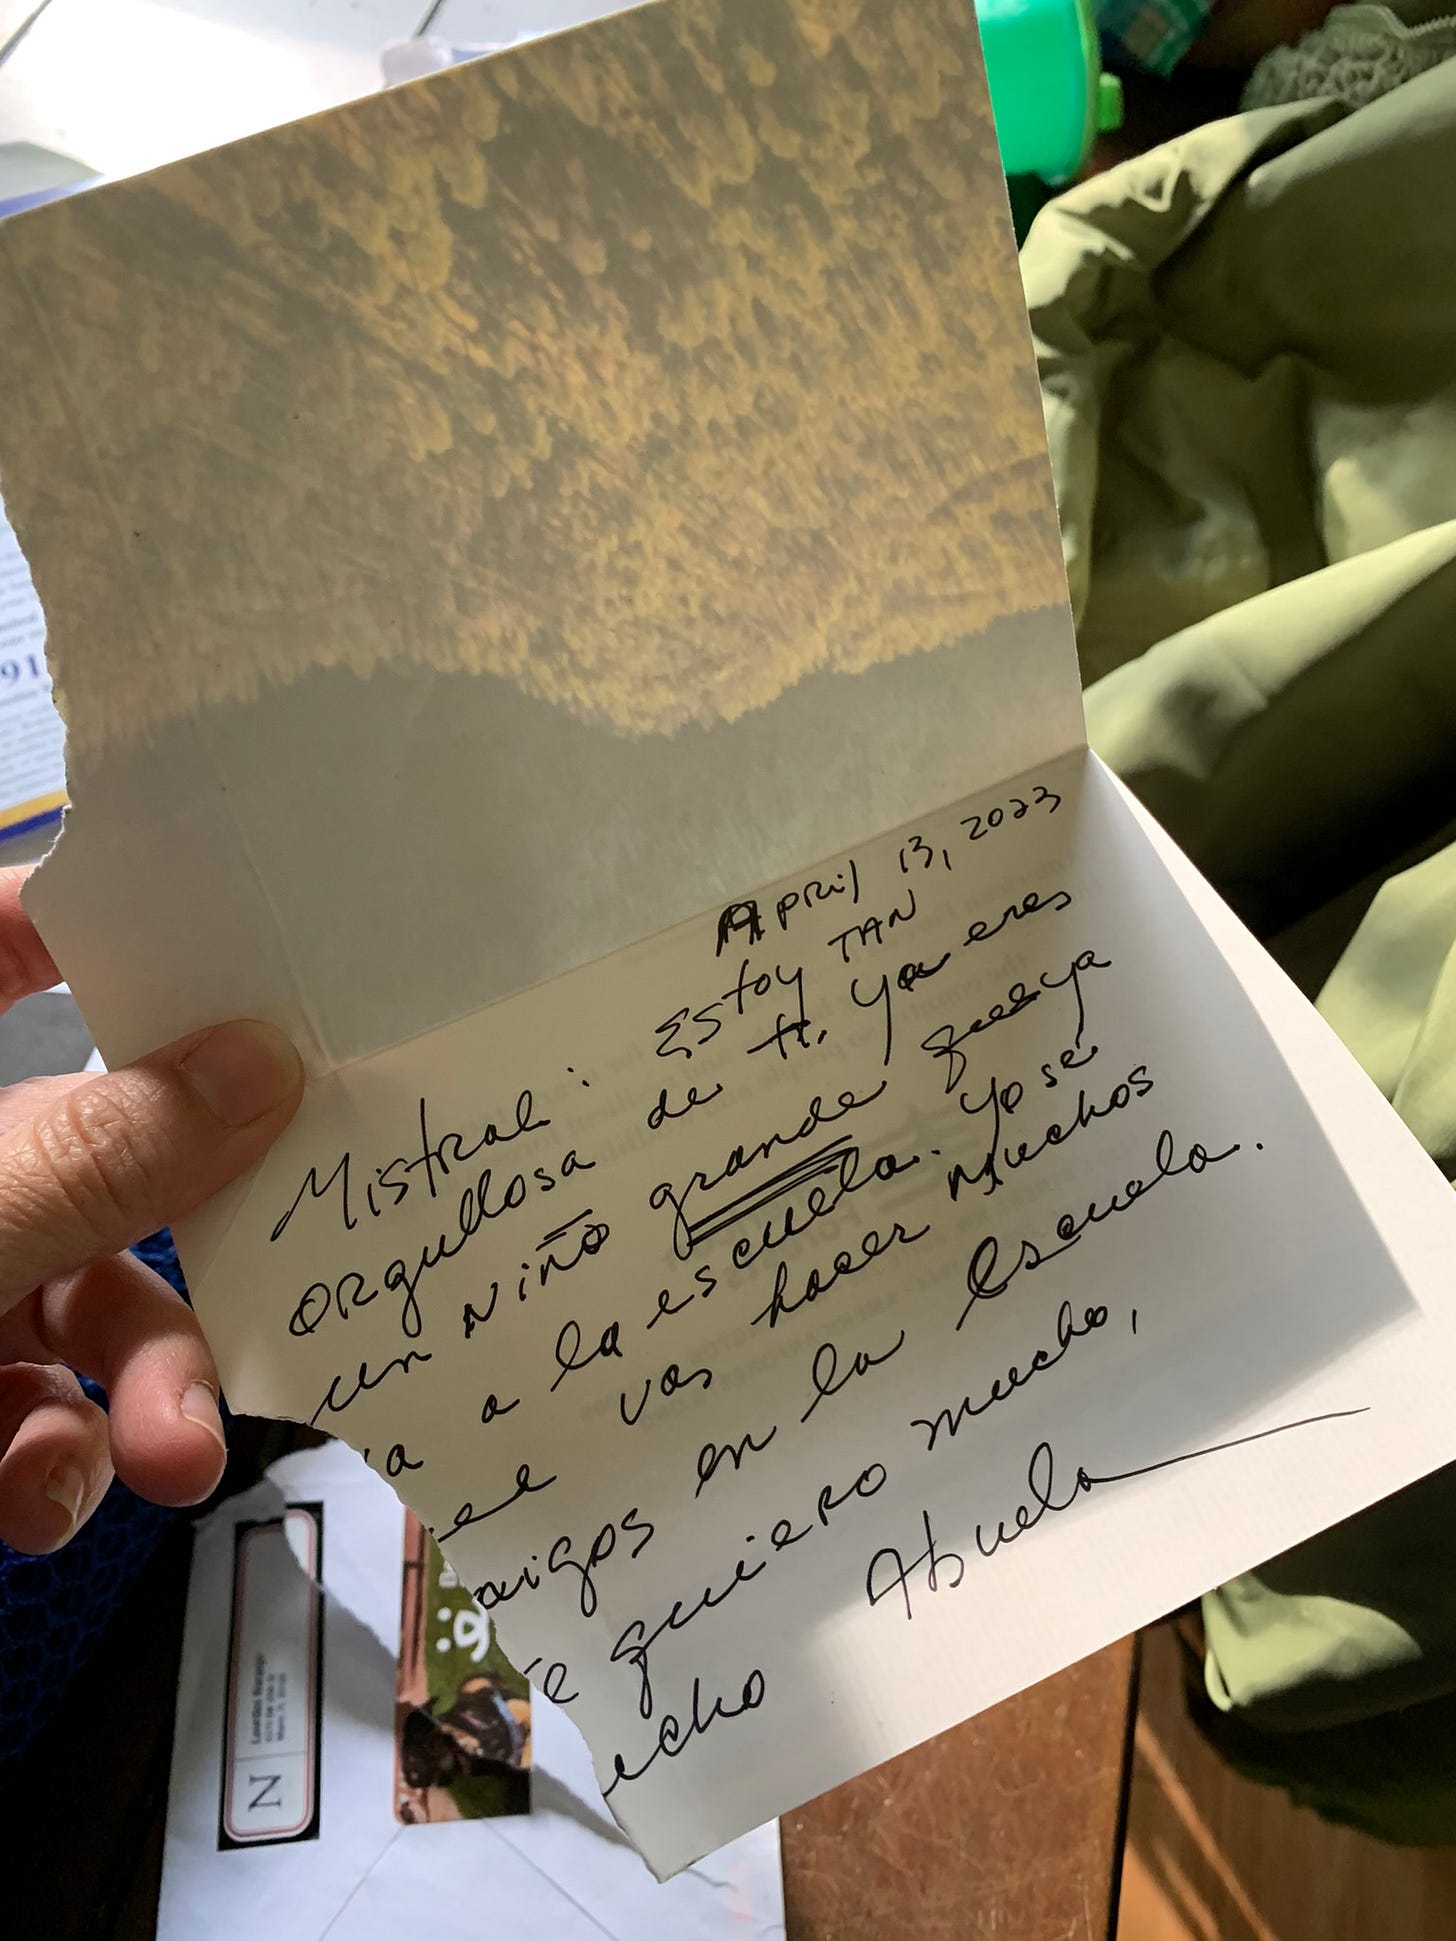 April 13, 2023
Mistral: Estoy TAN
orgullosa de ti. Ya eres
un niño grande que ya
a a la escuela. Yo sé
ue vas hacer muchos
migos en la Escuela.
e quiero mucho,
ucho Abuela
N
91